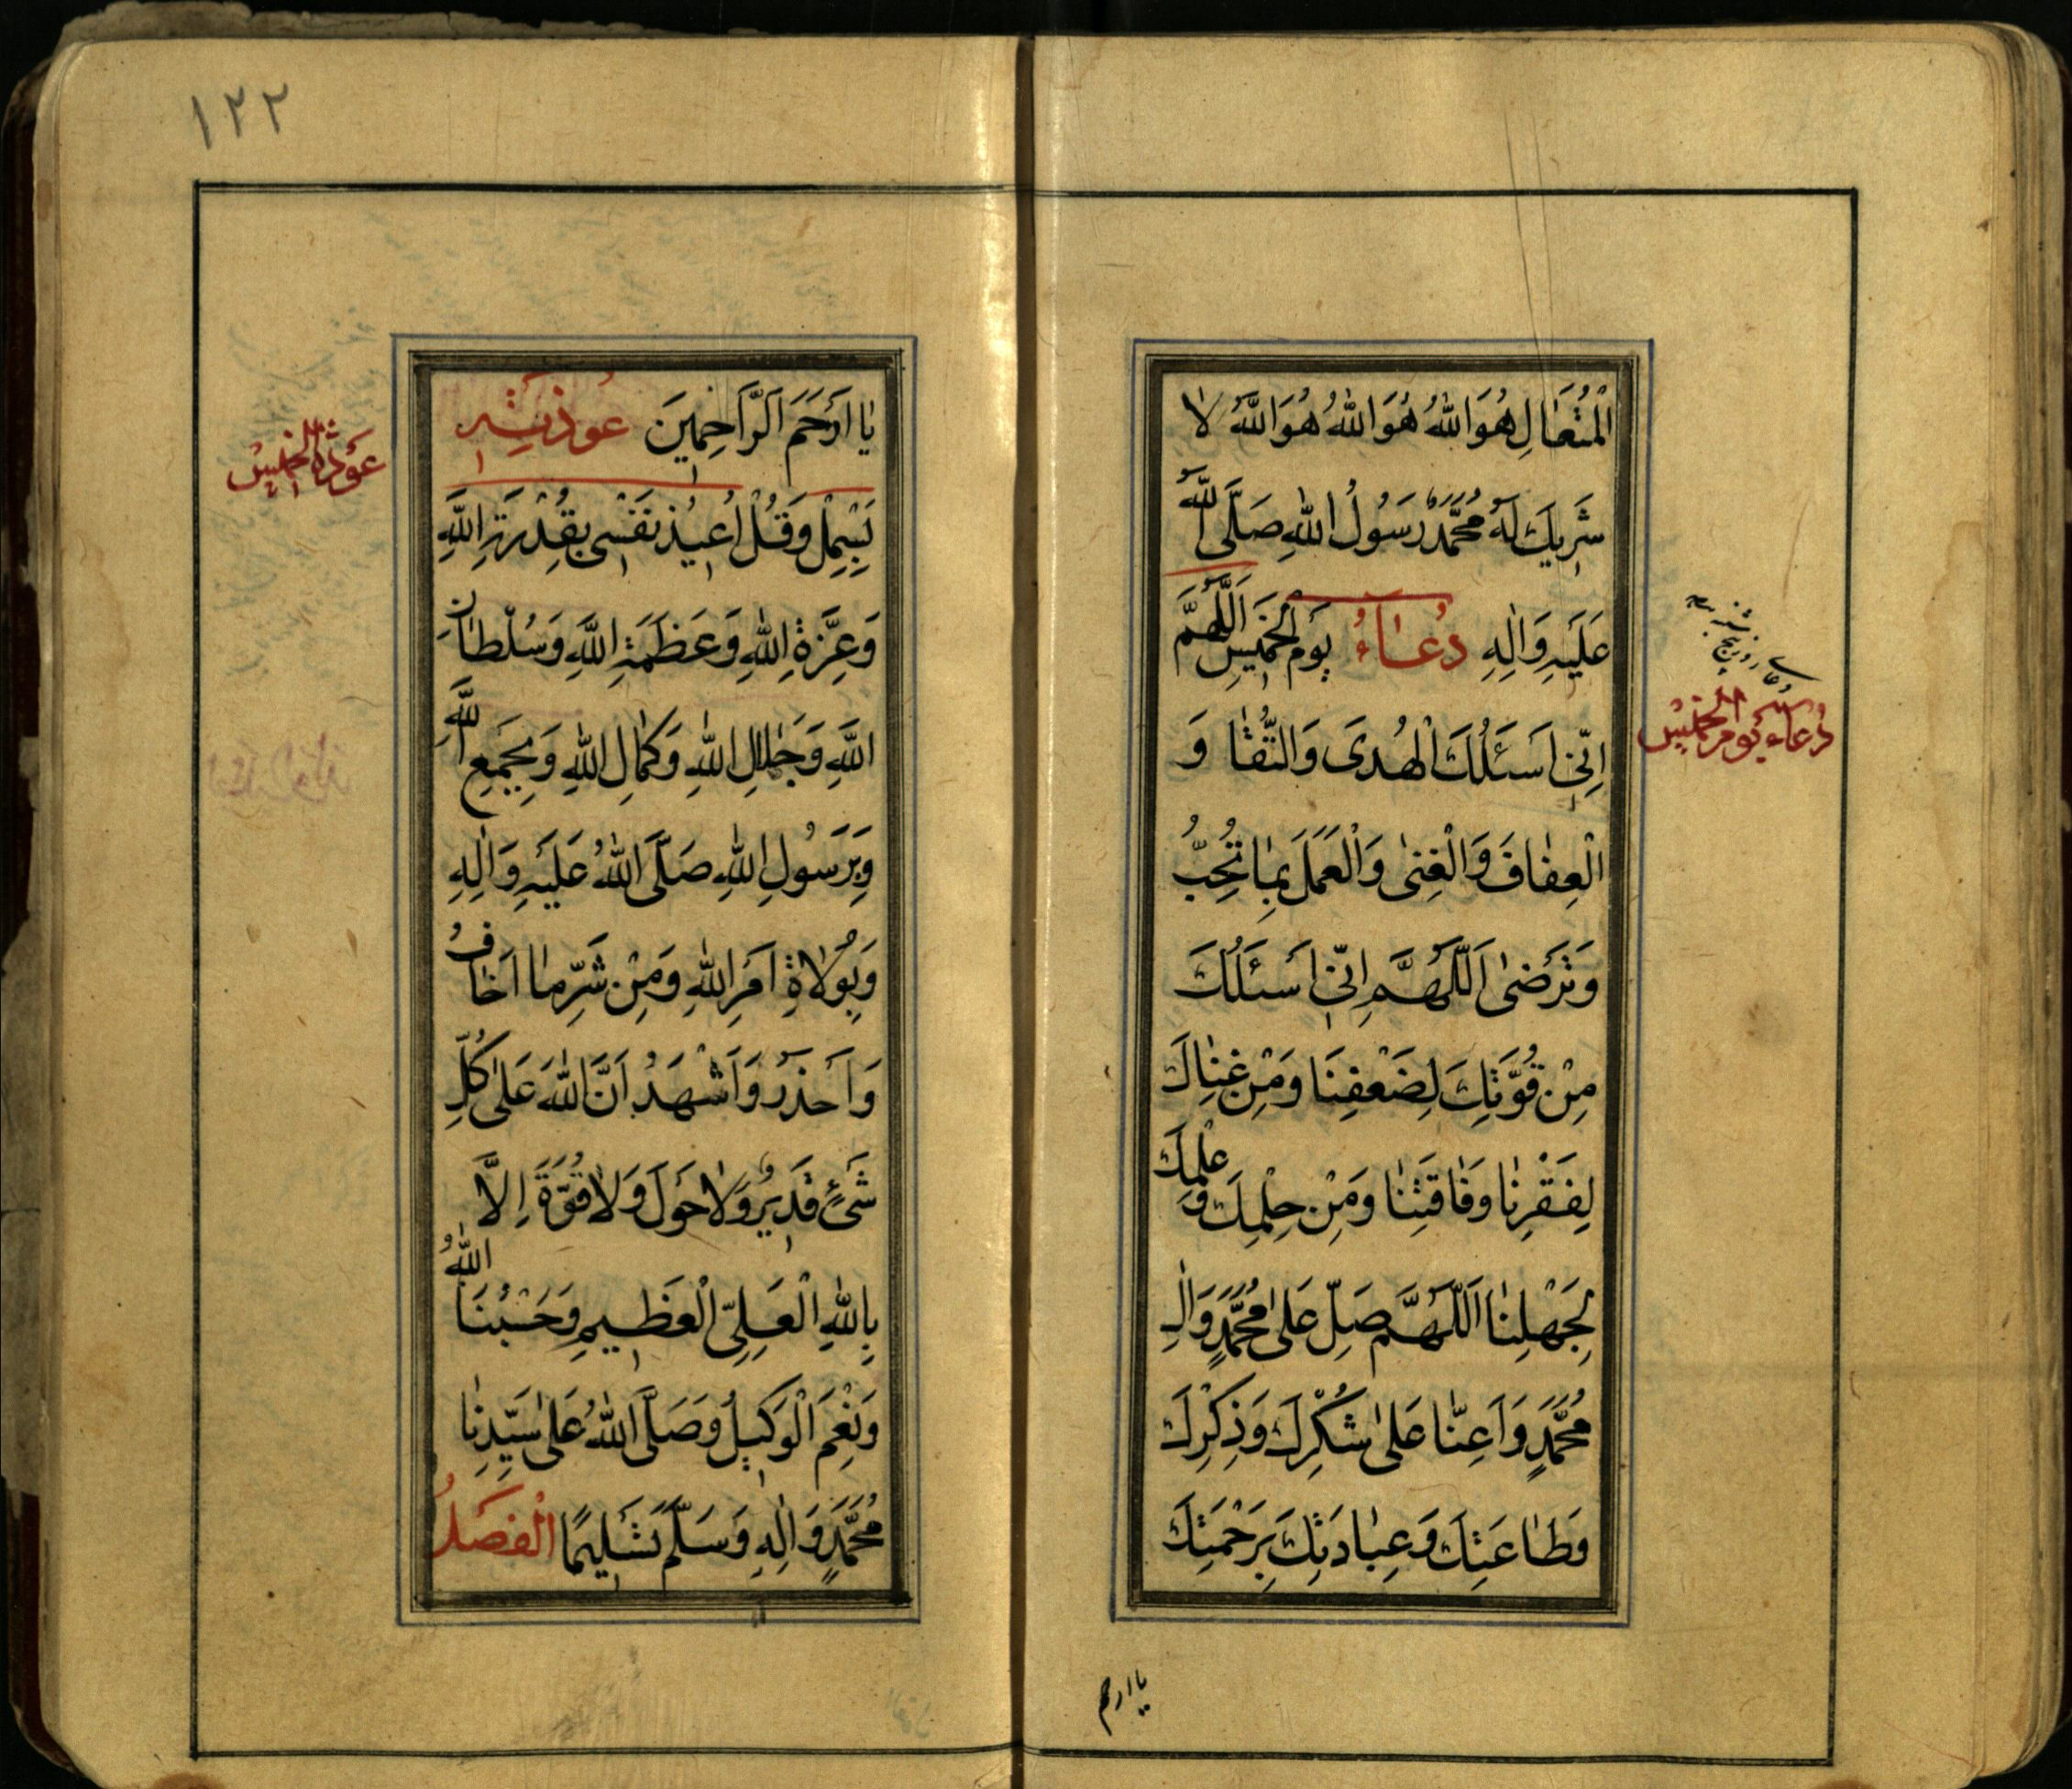 الْمُتَعَالِ هُوَ اللّٰهُ هُوَ اللّٰهُ هُوَ اللّٰهُ لا
شَرِيكَ لَهُ مُحَمَّدٌ رَسُولُ اللّٰهِ صَلَّى اللّٰهُ
عَلَيْهِ وَآلِهِ دُعَاءُ يَوْمِ الْخَمِيسِ اَللّٰهُمَّ
اِنّي اَسْئَلُكَ الْهُدَى وَالتُّقٰا وَ
الْعِفٰافَ وَالْغِنىٰ وَالْعَمَلَ بِمٰا تُحِبُّ
وَتَرْضىٰ اَللّٰهُمَّ اِنّي اَسْئَلُكَ
مِنْ قُوَّتِكَ لِضَعْفِنَا وَمِنْ غِنٰاكَ
لِفَقْرِنٰا وَفٰاقَتِنٰا وَمِنْ حِلْمِكَ وَعِلْمِكَ
لِجَهْلِنٰا اَللّٰهُمَّ صَلِّ عَلىٰ مُحَمَّدٍ وَآلِ
مُحَمَّدٍ وَاَعِنّٰا عَلىٰ شُكْرِكَ وَذِكْرِكَ
وَطٰاعَتِكَ وَعِبٰادَتِكَ بِرَحْمَتِكَ
دعاى روز پنج شنبه
دُعَاءِ يَوْمِ الْخَمِيسِ
يا ارحم
١٢٢
يٰا اَرْحَمَ الرَّاحِمِينَ عُوذَتِهِ
بَسْمِلْ وَقُلْ اُعِيذُ نَفْسِى بِقُدْرَةِ اللّٰهِ
وَعِزَّةِ اللّٰهِ وَعَظَمَةِ اللّٰهِ وَسُلْطٰانِ
اللّٰهِ وَجَلٰالِ اللّٰهِ وَكَمٰالِ اللّٰهِ وَبِجَمْعِ اللّٰهِ
وَبِرَسُولِ اللّٰهِ صَلَّى اللّٰهُ عَلَيْهِ وَآلِهِ
وَبِوُلٰاةِ اَمْرِ اللّٰهِ وَمِنْ شَرِّ مٰا اَخٰافُ
وَاَحْذَرُ وَاَشْهَدُ اَنَّ اللّٰهَ عَلىٰ كُلِّ
شَىْءٍ قَدِيرٌ وَلٰا حَوْلَ وَلٰا قُوَّةَ اِلَّا
بِاللّٰهِ الْعَلِىِّ الْعَظِيمِ وَحَسْبُنَا اللّٰهُ
وَنِعْمَ الْوَكِيلُ وَصَلَّى اللّٰهُ عَلىٰ سَيِّدِنٰا
مُحَمَّدٍ وَآلِهِ وَسَلَّمَ تَسْلِيمًا الْفَصْلُ
عَوْذَةُ الْخَمِيسِ